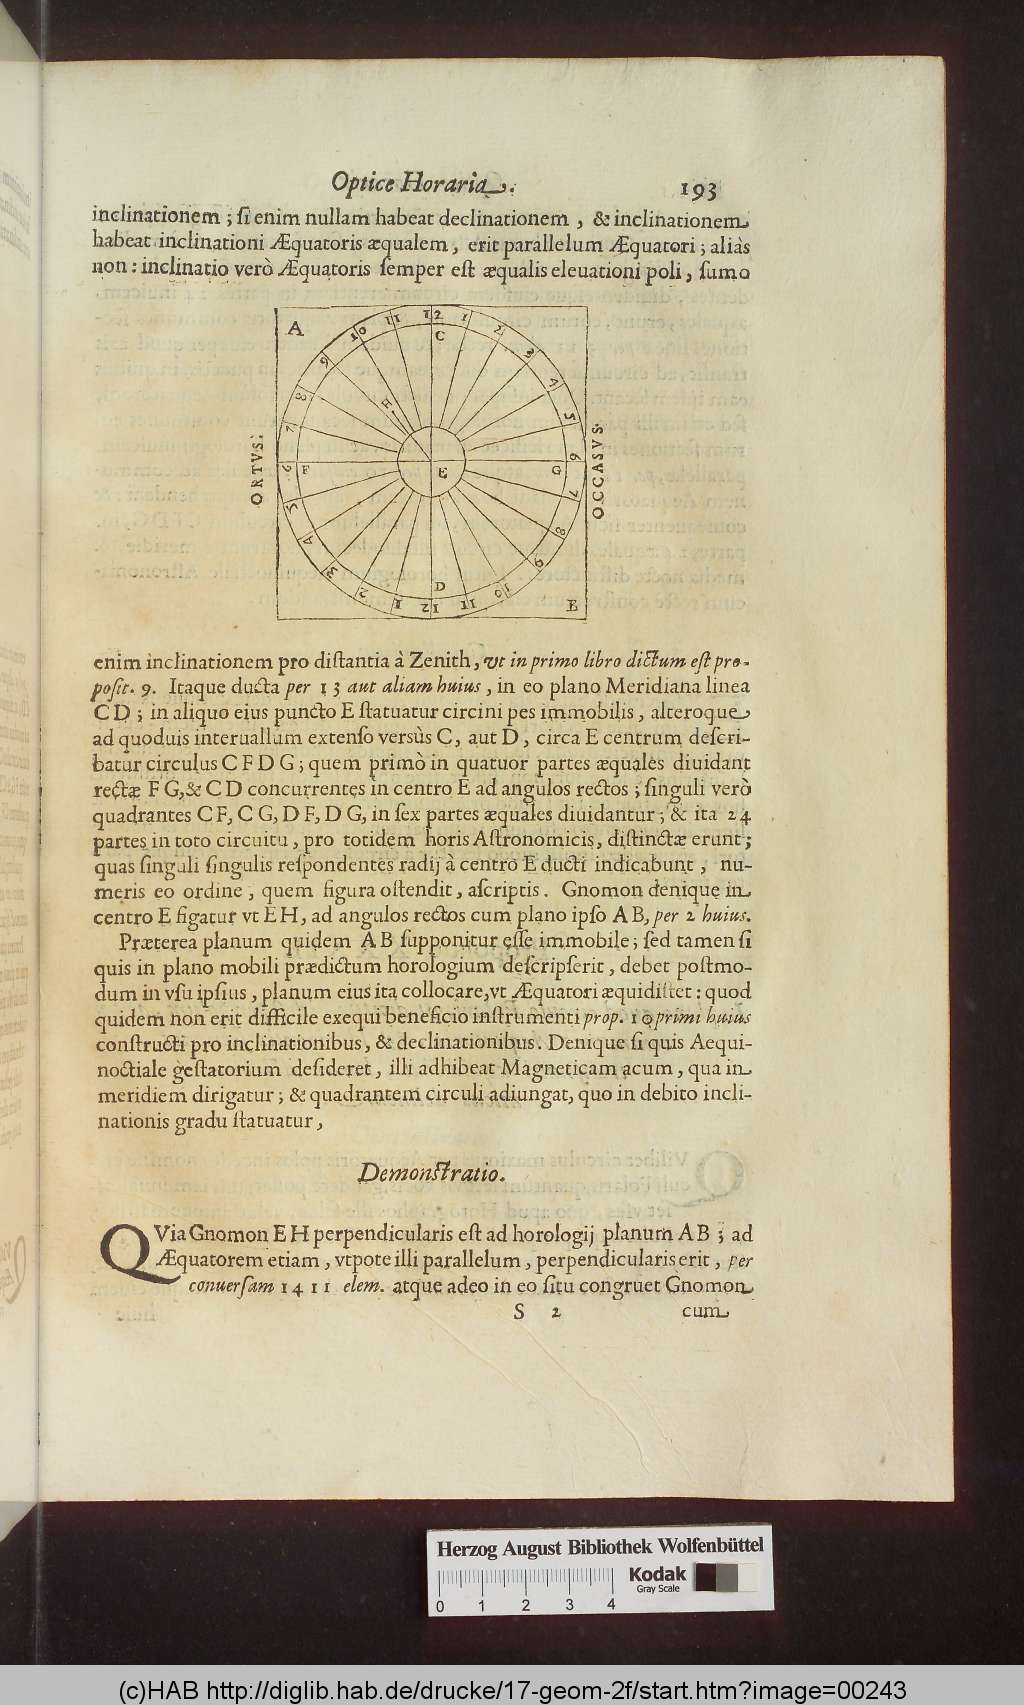 Optice Horaria. 193
inclinationem ; ſi enim nullam habeat declinationem , & inclinationem
habeat inclinationi Æquatoris æqualem, erit parallelum Æquatori ; aliàs
non : inclinatio verò Æquatoris ſemper eſt æqualis eleuationi poli, ſumo
A
10 11 12 1 2
C
9 3
8 4
H
7 5
ORTVS.
6 F E G 6
OCCASVS.
5 7
4 8
3 9
D
2 1 12 11 10
B
enim inclinationem pro diſtantia à Zenith, vt in primo libro dictum eſt pro-
poſit. 9. Itaque ducta per 13 aut aliam huius, in eo plano Meridiana linea
C D ; in aliquo eius puncto E ſtatuatur circini pes immobilis, alteroque
ad quoduis interuallum extenſo versùs C, aut D, circa E centrum deſcri-
batur circulus C F D G ; quem primò in quatuor partes æquales diuidant
rectæ F G, & C D concurrentes in centro E ad angulos rectos ; ſinguli verò
quadrantes C F, C G, D F, D G, in ſex partes æquales diuidantur ; & ita 24
partes in toto circuitu, pro totidem horis Aſtronomicis, diſtinctæ erunt ;
quas ſinguli ſingulis reſpondentes radij à centro E ducti indicabunt, nu-
meris eo ordine, quem figura oſtendit, aſcriptis. Gnomon denique in
centro E figatur vt E H, ad angulos rectos cum plano ipſo A B, per 2 huius.
Præterea planum quidem A B ſupponitur eſſe immobile ; ſed tamen ſi
quis in plano mobili prædictum horologium deſcripſerit, debet poſtmo-
dum in vſu ipſius, planum eius ita collocare, vt Æquatori æquidiſtet : quod
quidem non erit difficile exequi beneficio inſtrumenti prop. 10 primi huius
conſtructi pro inclinationibus, & declinationibus. Denique ſi quis Aequi-
noctiale geſtatorium deſideret, illi adhibeat Magneticam acum, qua in
meridiem dirigatur ; & quadrantem circuli adiungat, quo in debito incli-
nationis gradu ſtatuatur,
Demonſtratio.
QVia Gnomon E H perpendicularis eſt ad horologij planum A B ; ad
Æquatorem etiam, vtpote illi parallelum, perpendicularis erit, per
conuerſam 14 11 elem. atque adeo in eo ſitu congruet Gnomon
S 2 cum
Herzog August Bibliothek Wolfenbüttel
Kodak
Gray Scale
0 1 2 3 4
(c)HAB http://diglib.hab.de/drucke/17-geom-2f/start.htm?image=00243